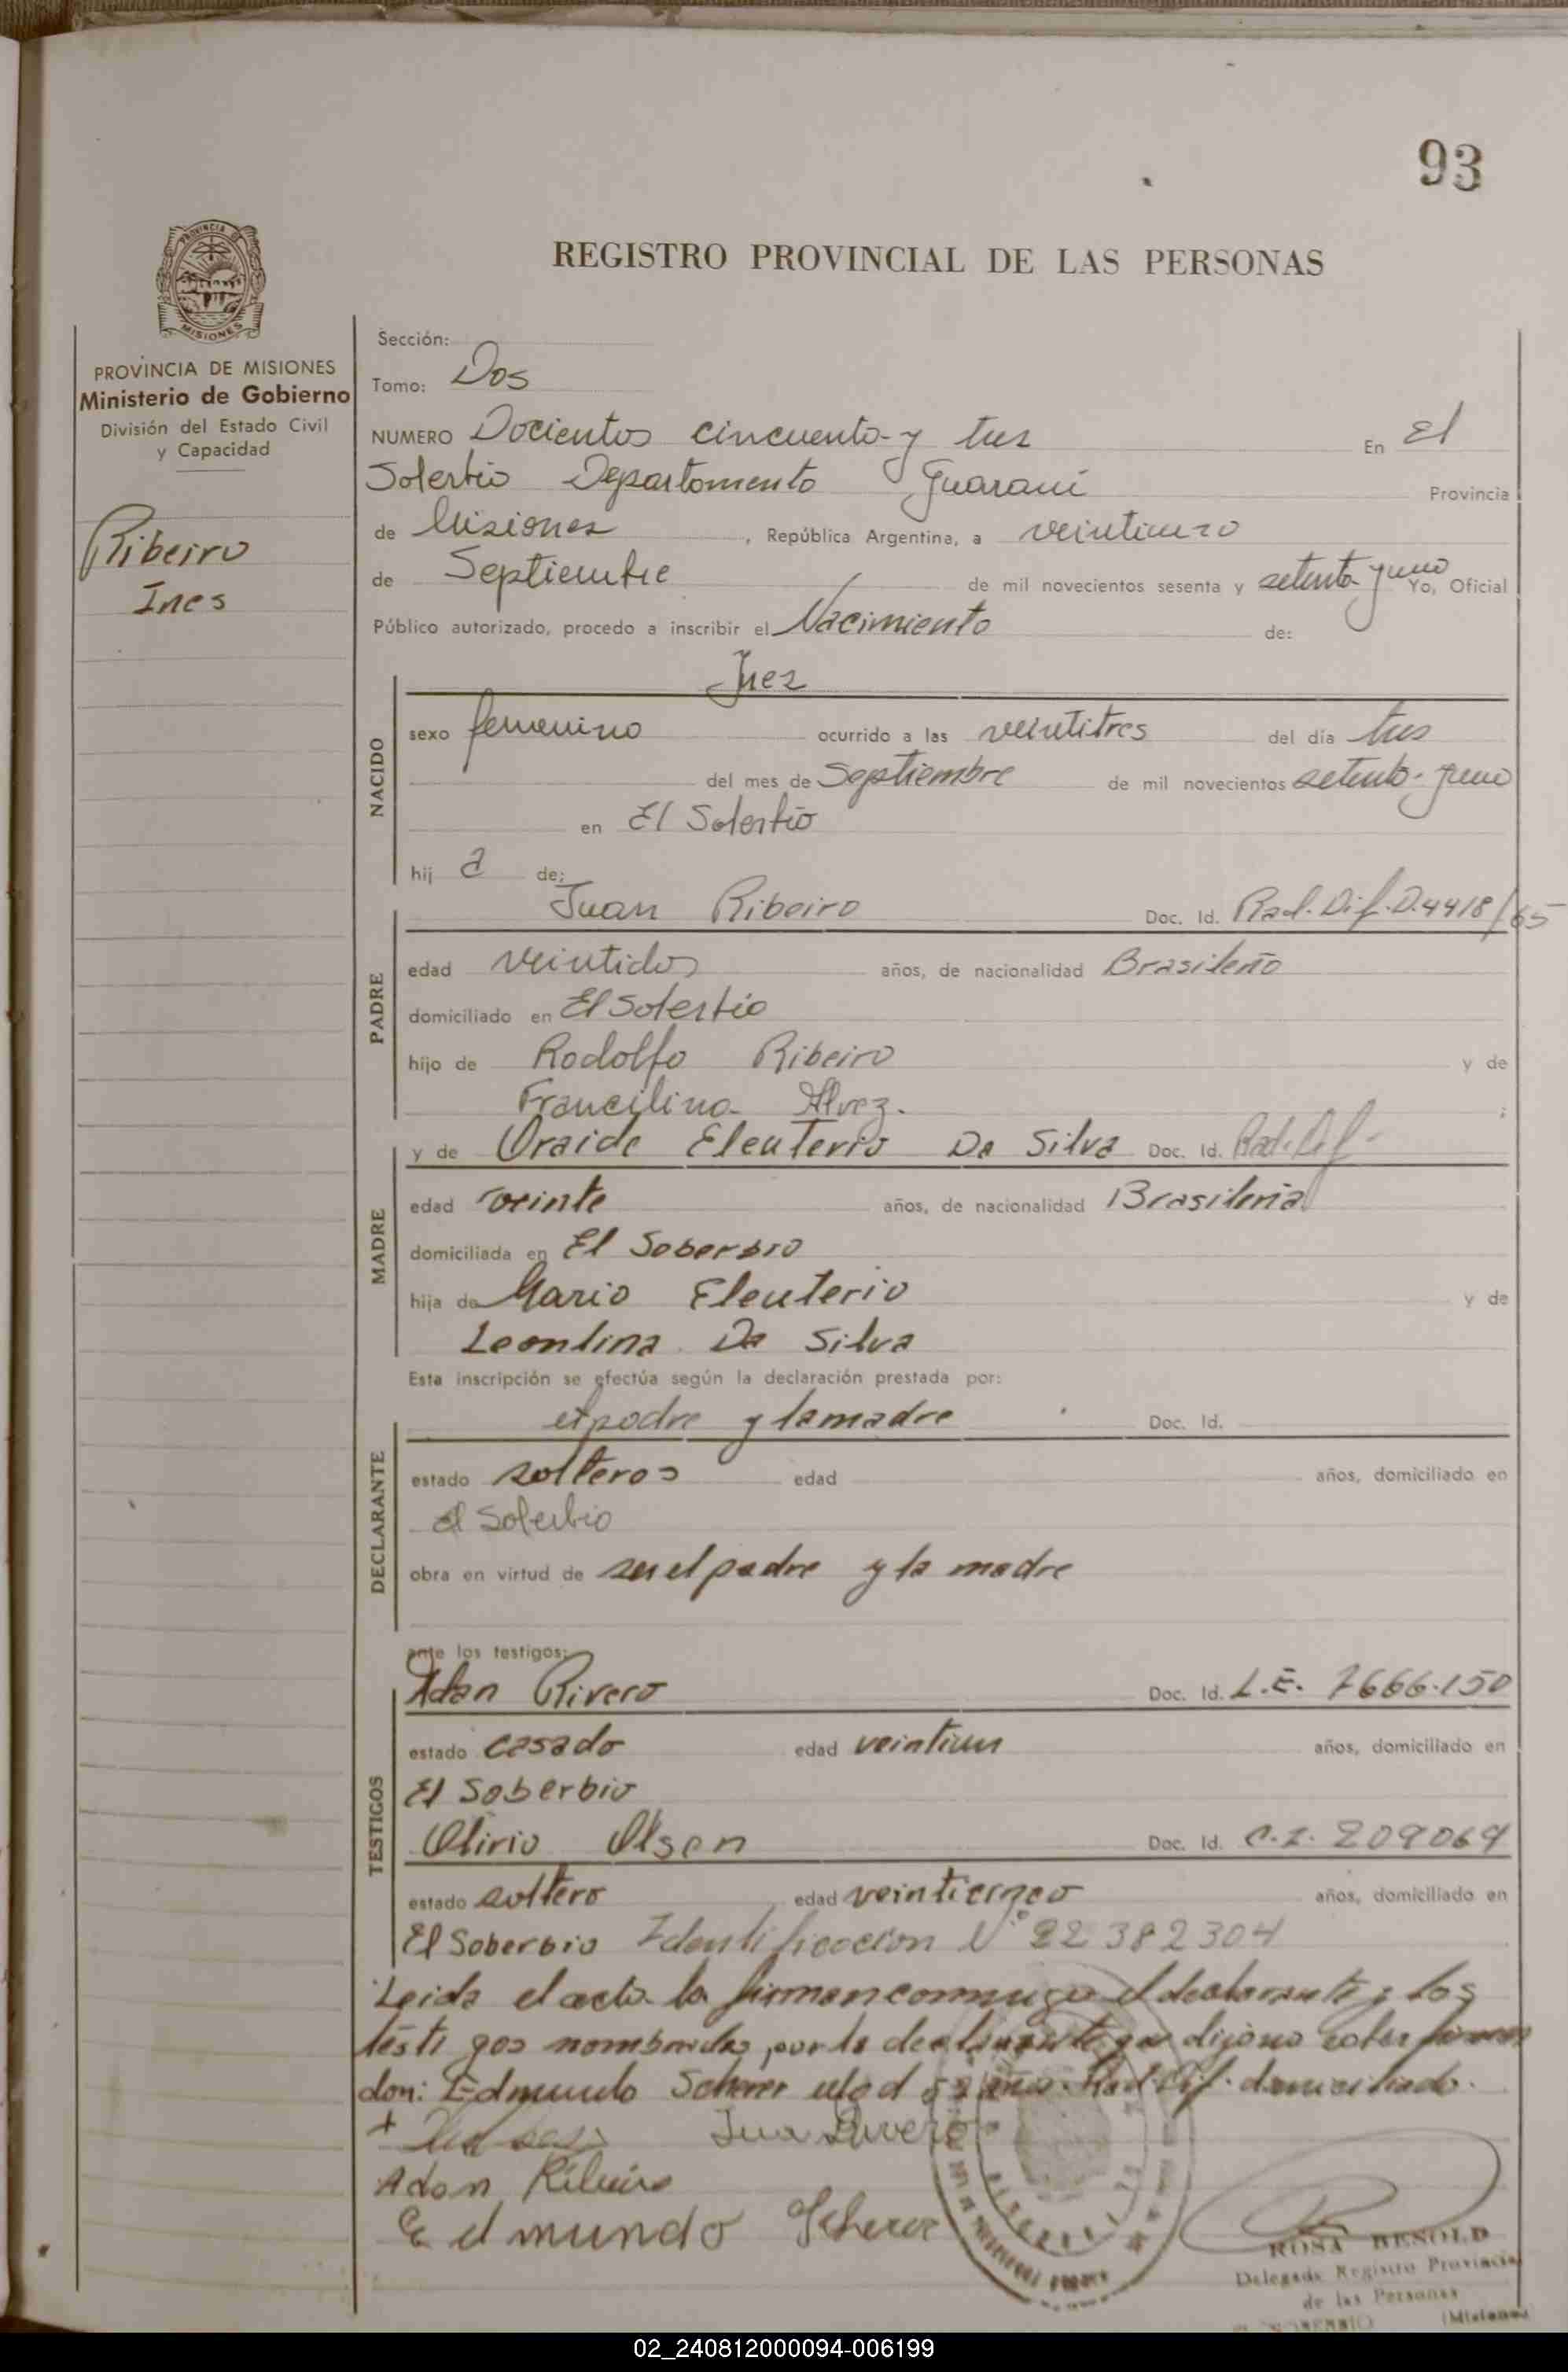 93
PROVINCIA DE
MISIONES
REGISTRO PROVINCIAL DE LAS PERSONAS
PROVINCIA DE MISIONES
Ministerio de Gobierno
División del Estado Civil
y Capacidad
Ribeiro
Ines
Sección:
Tomo: Dos
NUMERO Docientos cincuenta y tres En El
Soberbio Departamento Guaraní Provincia
de Misiones , República Argentina, a
de Septiembre de mil novecientos sesenta y setenta y uno Yo, Oficial
Público autorizado, procedo a inscribir el Nacimiento de:
Inez
NACIDO
sexo femenino ocurrido a las veintitres del día tres
del mes de Septiembre de mil novecientos setenta y uno
en El Soberbio
hij a de:
PADRE
Juan Ribeiro Doc. Id. Rad. Dif. D.4418/65
edad veintidos años, de nacionalidad Brasileño
domiciliado en El Soberbio
hijo de Rodolfo Ribeiro y de
Francilina Alvez. ;
MADRE
y de Oraide Eleuterio Da Silva Doc. Id. Rad. Dif-
edad veinte años, de nacionalidad Brasileña
domiciliada en El Soberbio
hija de Mario Eleuterio y de
Leontina Da Silva
Esta inscripción se efectúa según la declaración prestada por:
DECLARANTE
el padre y la madre Doc. Id.
estado solteros edad años, domiciliado en
El Soberbio
obra en virtud de ser el padre y la madre
ante los testigos:
TESTIGOS
Adan Rivero Doc. Id. L.E. 7666.150
estado casado edad veintiun años, domiciliado en
El Soberbio
Olirio Olsen Doc. Id. C.I. 209069
estado soltero edad veinticinco años, domiciliado en
El Soberbio Identificacion N° 22382304
Leida el acta la firman conmigo el declarante y los
testigos nombrados, por la declarante que dijo no saber
don: Edmundo Scherer Rad. Dif. domiciliado.
+
Adan Ribeiro
Edmundo Scherer
ROSA BESOLD
Delegada Registro Provincial
de las Personas
EL SOBERBIO (Misiones)
02_240812000094-006199